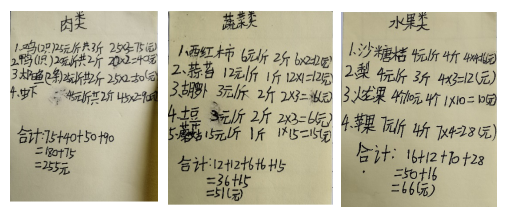 肉类
1.鸡(1只)25元/斤共3斤 25x3=75(元)
2.鸭(1只)20元/斤共2斤 20x2=40(元)
3. 25元/斤共2斤 25x2=50(元)
4.虾 45元/斤共2斤 45x2=90(元)
合计:75+40+50+90
=180+75
=255元
蔬菜类
1.西红柿 6元/斤 2斤 6x2=12(元)
2.蒜苔 12元/斤 1斤 12x1=12(元)
3.胡 3元/斤 2斤 2x3=6(元)
4.土豆 3元/斤 2斤 2x3=6(元)
5. 15元/斤 1斤 1x15=15(元)
合计:12+12+6+6+15
=36+15
=51(元)
水果类
1.沙糖桔 4元/斤 4斤 4x4=16(元)
2.梨 4元/斤 3斤 4x3=12(元)
3.火龙果 4个10元 4个 1x10=10(元)
4.苹果 7元/斤 4斤 7x4=28(元)
合计: 16+12+10+28
=50+16
=66(元)